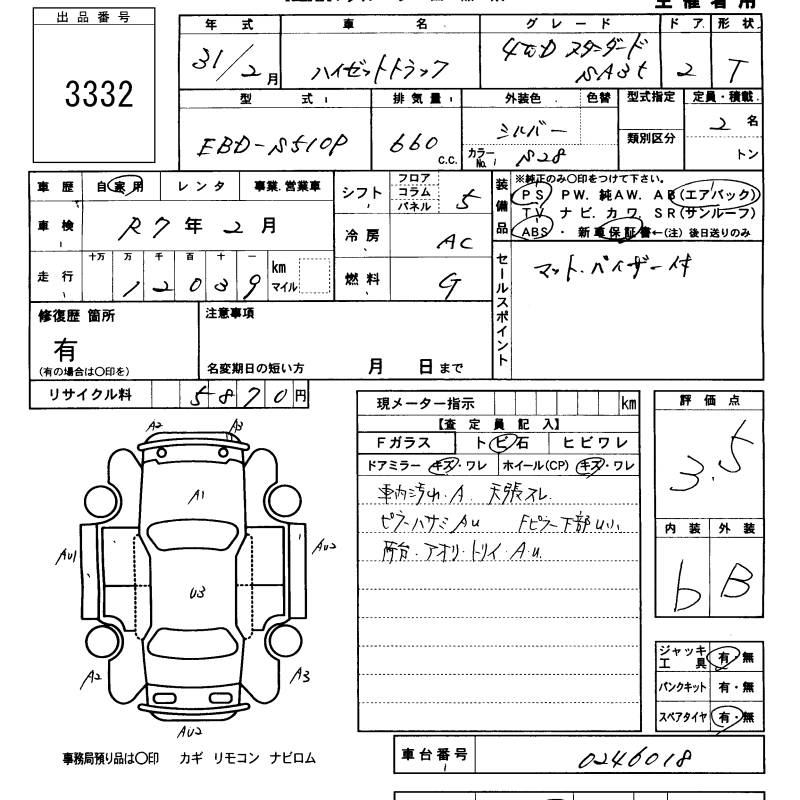 出品番号
3332
年式 車名 グレード ドア 形状
31/2月 ハイゼットトラック 4WD スタンダード SA3t 2 T
型式 排気量 外装色 色替 型式指定 定員・積載
EBD-S510P 660 C.C. シルバー 類別区分 2名
カラーNo. S28 トン
車歴 自家用 レンタ 事業.営業車
車検 R7年2月
走行 十万 万 千 百 十 一
12039 km マイル
シフト フロア コラム パネル 5
冷房 AC
燃料 G
装備品 ※純正のみ〇印をつけて下さい。
PS PW. 純AW. AB(エアバック)
TV ナビ. カワ. SR(サンルーフ)
ABS ・ 新車保証書←(注)後日送りのみ
セールスポイント マット.バイザー付
修復歴 箇所
有
(有の場合は〇印を)
注意事項
名変期日の短い方 月 日まで
リサイクル料 5870円
現メーター指示 km
【査定員記入】
Fガラス トビ石 ヒビワレ
ドアミラー キズ・ワレ ホイール(CP) キズ・ワレ
車内汚れ.A. 天張スレ.
ピラーハサミAu Fピラー下部U小
荷台.アオリ.トリイ.A.u.
評価点
3.5
内装 外装
b B
A2 A3
A1
Au1 Au2
U3
A2 A3
Au2
ジャッキ工具 有・無
パンクキット 有・無
スペアタイヤ 有・無
事務局預り品は〇印 カギ リモコン ナビロム
車台番号 0246018